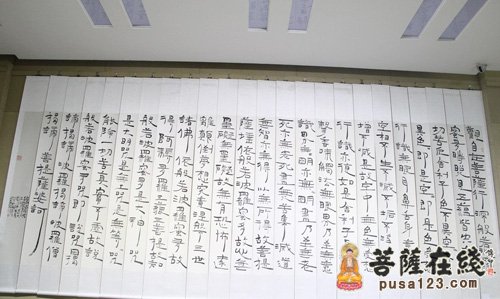 觀自在菩薩行深般若波羅
蜜多時照見五蘊皆空度一
切苦厄舍利子色不異空空不異色
色即是空空即是色受想
行識亦復如是舍利子是諸法
空相不生不滅不垢不淨不
增不減是故空中無色無受想
行識無眼耳鼻舌身意無色
聲香味觸法無眼界乃至無意
識界無無明亦無無明盡乃至無老
死亦無老死盡無苦集滅道
無智亦無得以無所得故菩提
薩埵依般若波羅蜜多故心無
罣礙無罣礙故無有恐怖遠
離顛倒夢想究竟涅槃三世
諸佛依般若波羅蜜多故
得阿耨多羅三藐三菩提故知
般若波羅蜜多是大神咒
是大明咒是無上咒是無等等咒
能除一切苦真實不虛故說
般若波羅蜜多咒即說咒曰揭
諦揭諦波羅揭諦波羅僧
揭諦菩提薩婆訶
菩萨在线
pusa123.com